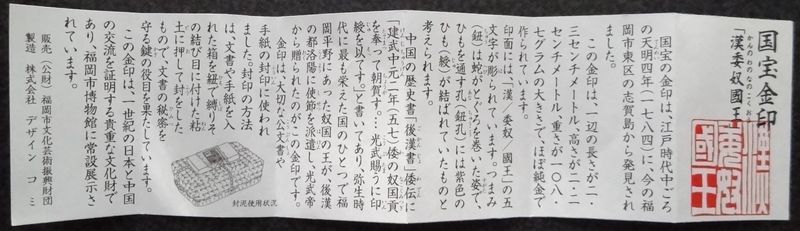 国宝金印
かんのわのなのこくおう
「漢委奴國王」
漢委奴國王
国宝の金印は、江戸時代中ごろ
の天明四年（一七八四）に、今の福
岡市東区の志賀島から発見され
ました。
この金印は、一辺の長さが二・
三センチメートル、高さが二・二
センチメートル、重さが一〇八・
七グラムの大きさで、ほぼ純金で
作られています。
印面には「漢／委奴／國王」の五
文字が彫られています。つまみ
（鈕）は蛇がとぐろを巻いた姿で、
ひもを通す孔（鈕孔）には紫色の
ひも（綬）が結ばれていたものと
考えられます。
中国の歴史書「後漢書」倭伝に
「建武中元二年（五七）倭の奴国貢
を奉って朝賀す。…光武賜うに印
綬を以てす。」と書いてあり、弥生時
代に最も栄えた国のひとつで福
岡平野にあった奴国の王が、後漢
の都洛陽に使節を派遣し、光武帝
から贈られたのがこの金印です。
金印は、大切な公文書や
手紙の封印に使われ
ました。封印の方法
は、文書や手紙を入
れた箱を紐で縛りそ
の結び目に付けた粘
土に押して封をした
もので、文書の秘密を
守る鍵の役目を果たしています。
封泥使用状況
この金印は、一世紀の日本と中国
の交流を証明する貴重な文化財で
あり、福岡市博物館に常設展示さ
れています。
販売（公財）福岡市文化芸術振興財団
製造 株式会社 デザインコミ